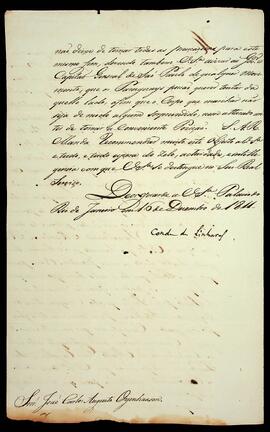 não deixe de tomar todas as para este
mesmo fim, devendo tambem V. S.ª avizar ao Gov.or
Capitão General de São Paulo de qualquer movi-
mento, que o Paraguay possa querer tentar da-
quelle lado, afim que o Corpo que marchar não
seja de modo algum surprendido, nem
tes de tomar a conveniente Pozição. S. A. R.
Manda Recommendar muito este objecto a V. S.ª
e tudo, e tudo espera do zelo, actividade, e intelli-
gencia com que V. S.ª se destingue no Seu Real
Serviço.
Deos guarde a V. S.ª Palacio do
Rio de Janeiro em 16 de Dezembro de 1811
Conde de Linhares
Snr. João Carlos Augusto Oyenhausen.